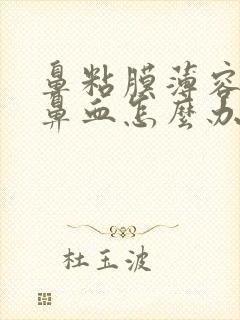 鼻粘膜薄容
鼻血怎麼办
杜玉波